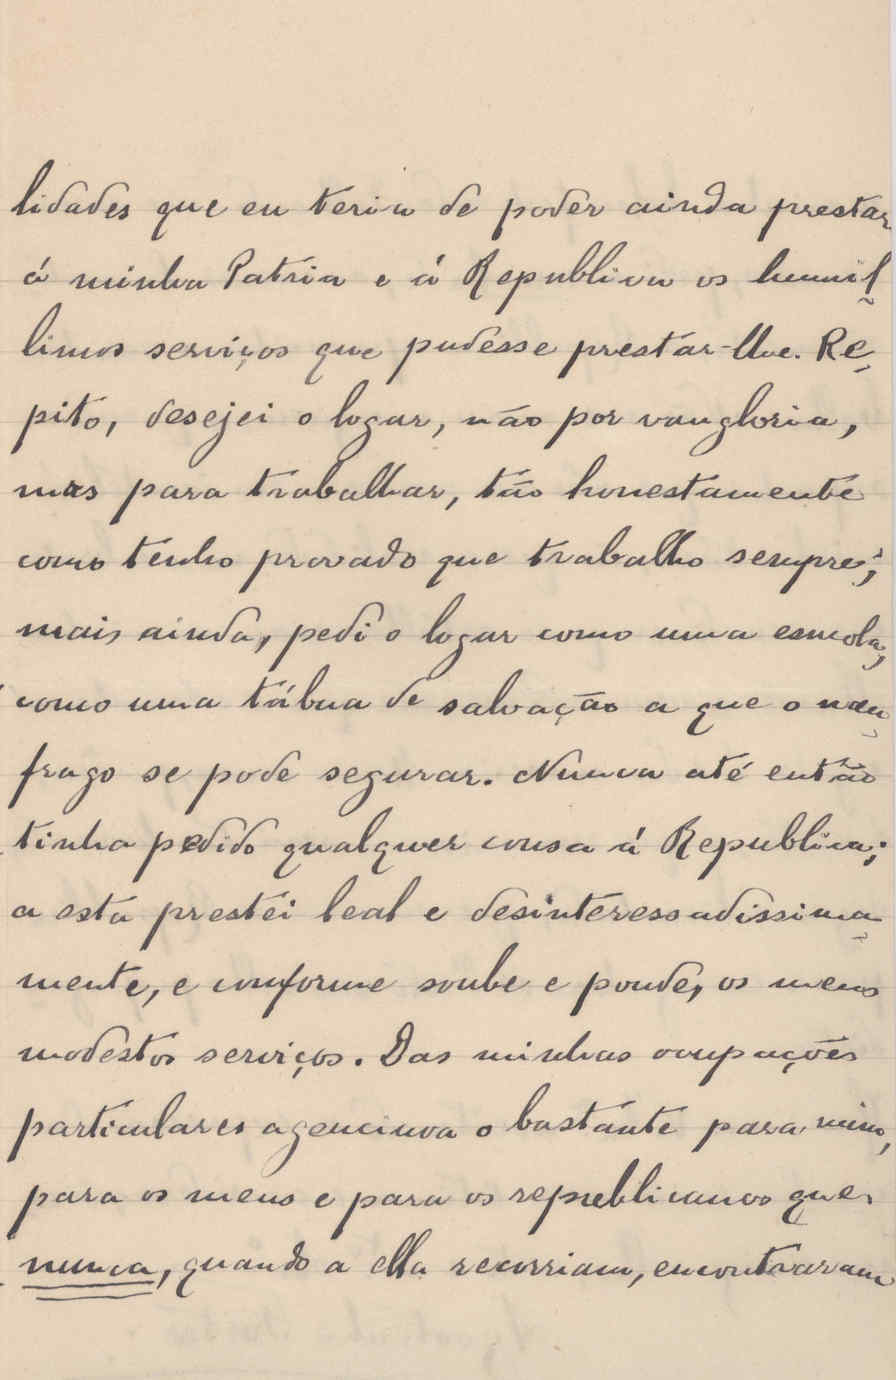 lidades que eu teria de poder ainda prestar
á minha Patria e á Republica os humil
limos serviços que pudesse prestar-lhe. Re-
pito, desejei o logar, não por vangloria,
mas para trabalhar, tão honestamente
como tenho provado que trabalho sempre;
mais ainda, pedi o logar como uma esmola,
como uma tábua de salvação a que o nau-
frago se pode segurar. Nunca até então
tinha pedido qualquer cousa á Republica;
a esta prestei leal e desinteressadissima-
mente, e conforme soube e poude, os meus
modestos serviços. Das minhas occupações
particulares agenciava o bastante para mim,
para os meus e para os republicanos que
nunca, quando a ella recorriam, encontraram